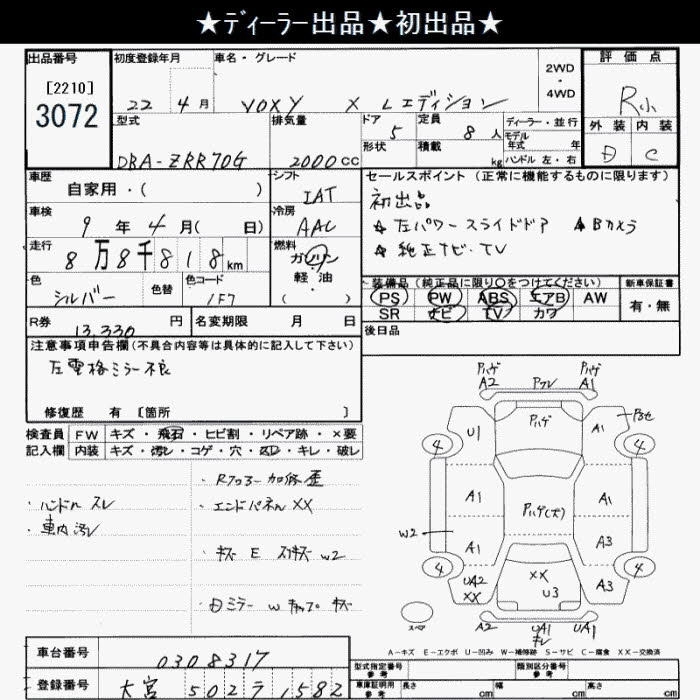 ★ディーラー出品★初出品★
出品番号
[2210]
3072
初度登録年月
22 4月
車名・グレード
VOXY X Lエディション
2WD
・
4WD
評価点
R小
外装 内装
D C
型式
DBA-ZRR70G
排気量
2000cc
ドア 5
形状
定員 8 人
積載 kg
ディーラー・並行
モデル年式 年
ハンドル 左・右
車歴
自家用・( )
シフト
IAT
セールスポイント (正常に機能するものに限ります)
初出品
★左パワースライドドア ★Bカメラ
★純正ナビ・TV
車検
9年4月( 日)
冷房
AAC
走行
8万8千818km
燃料
ガソリン
軽・油
( ・ )
色
シルバー
色替
色コード
1F7
装備品 (純正品に限り○をつけてください)
PS PW ABS エアB AW
SR ナビ TV カワ
新車保証書
有・無
R券
13,330 円
名変期限 月 日
後日品
注意事項申告欄(不具合内容等は具体的に記入して下さい)
左電格ミラー不良
修復歴 有 [箇所 ]
検査員 FW キズ・飛石・ヒビ割・リペア跡・×要
記入欄 内装 キズ・汚レ・コゲ・穴・凹・キレ・破レ
・Rフロアー加修歪
・ハンドルスレ
・エンドパネルXX
・車内汚レ
・キズ E スリキズ W2
・日ミラー W キャップ キズ
Pハゲ Pハゲ
A2 Pワレ A1
Pハゲ
U1 A1
4 4
A1 Pハゲ(大) A1
W2
A1 A3
4 4
UA2 XX A3
XX U3
スペア
A2 UA1 UA1
キレ
A-キズ E-エクボ U-凹み W-補修跡 S-サビ C-腐食 XX-交換済
車台番号
0308317
登録番号
大宮 502 ラ 1582
型式指定番号
参考
類別区分番号
参考
車庫証明用
参考
長さ cm
幅 cm
高さ cm